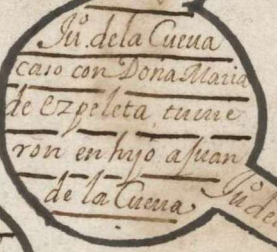 Juº. dela Cueva
caso con Doña Maria
de Ezpeleta, tuuie
ron en hijo a Juan
de la Cueua
Juº de